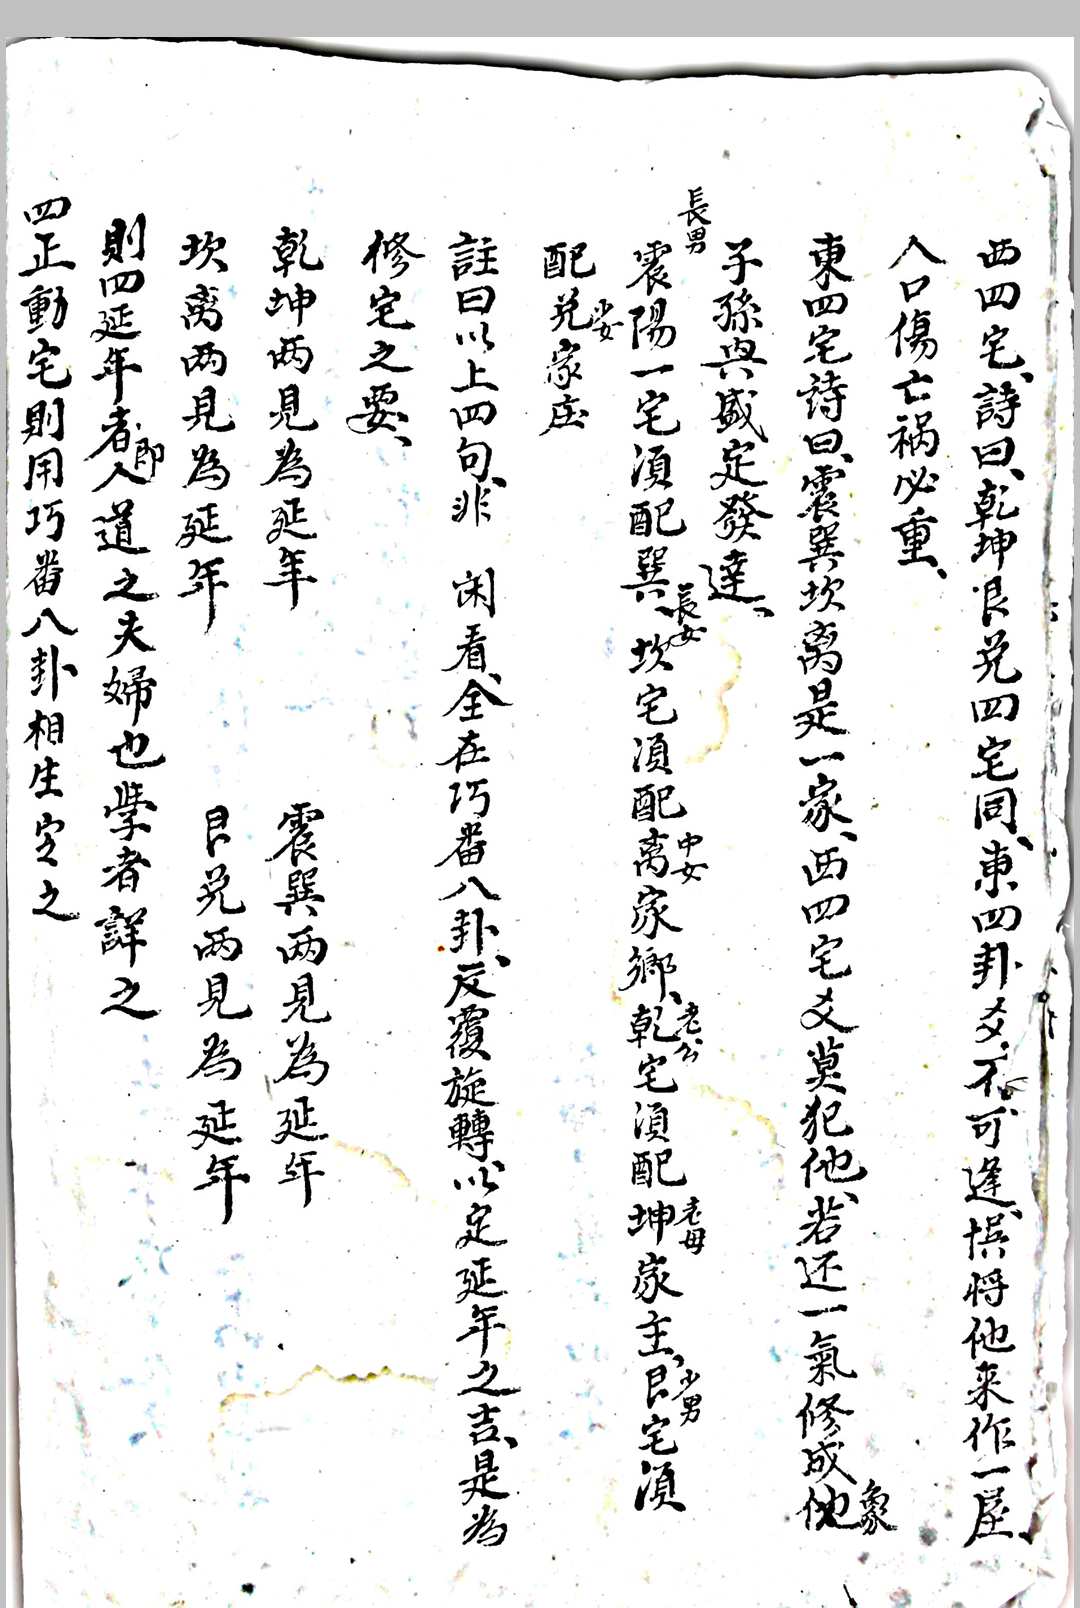 西四宅、詩曰、乾坤艮兑四宅同、東四卦爻不可逢、悮将他来作一屋、
人口傷亡祸必重、
東四宅詩曰、震巽坎离是一家、西四宅爻莫犯他、若还一氣修成他象
子孫兴盛定發達、
長男
震陽一宅湏配巽、長女坎宅湏配离中女家鄉、乾老公宅湏配坤老母家主、艮少男宅湏
配兑少女家庄
註曰以上四句、非闲看、全在巧畨八卦、反覆旋轉、以定延年之吉、是為
修宅之要、
乾坤两見為延年 震巽两見為延年
坎离两見為延年 艮兑两見為延年
則四延年者即人道之夫婦也学者詳之
四正動宅則用巧畨八卦相生定之